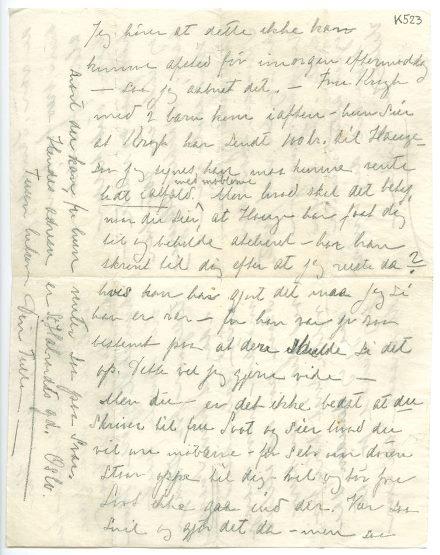 K523
Jeg hører at dette ikke kan
komme afsted før imorgen eftermiddag
— saa jeg aabnet det. — Fru Krogh
med 2 barn kom i aften – hun sier
at Krogh har sendt 100 kr. til Hauge
jeg synes han maa kunne vente
lidt
med møblerne
Men hvad skal det bety,
naar du sier, at Hauge har faat dig
til og beholde atelieret – har han
skrevet til dig efter at jeg reiste da?
hvis han har gjort det maa jeg si
han er rar – for han var jo saa
bestemt paa at dere skulde si det
op. Dette vil jeg gjerne vide —
Men du – er det ikke bedst at du
skriver til fru Soot og sier hvad du
vil med møblerne – for selv om døren
staar oppe til dig – vil og tør fru
Soot ikke gaa ind der. Vær saa
snil og gjør det da – men saa
snart du kan, for hun venter paa svar.
Hendes adresse er gd. Oslo.
Din